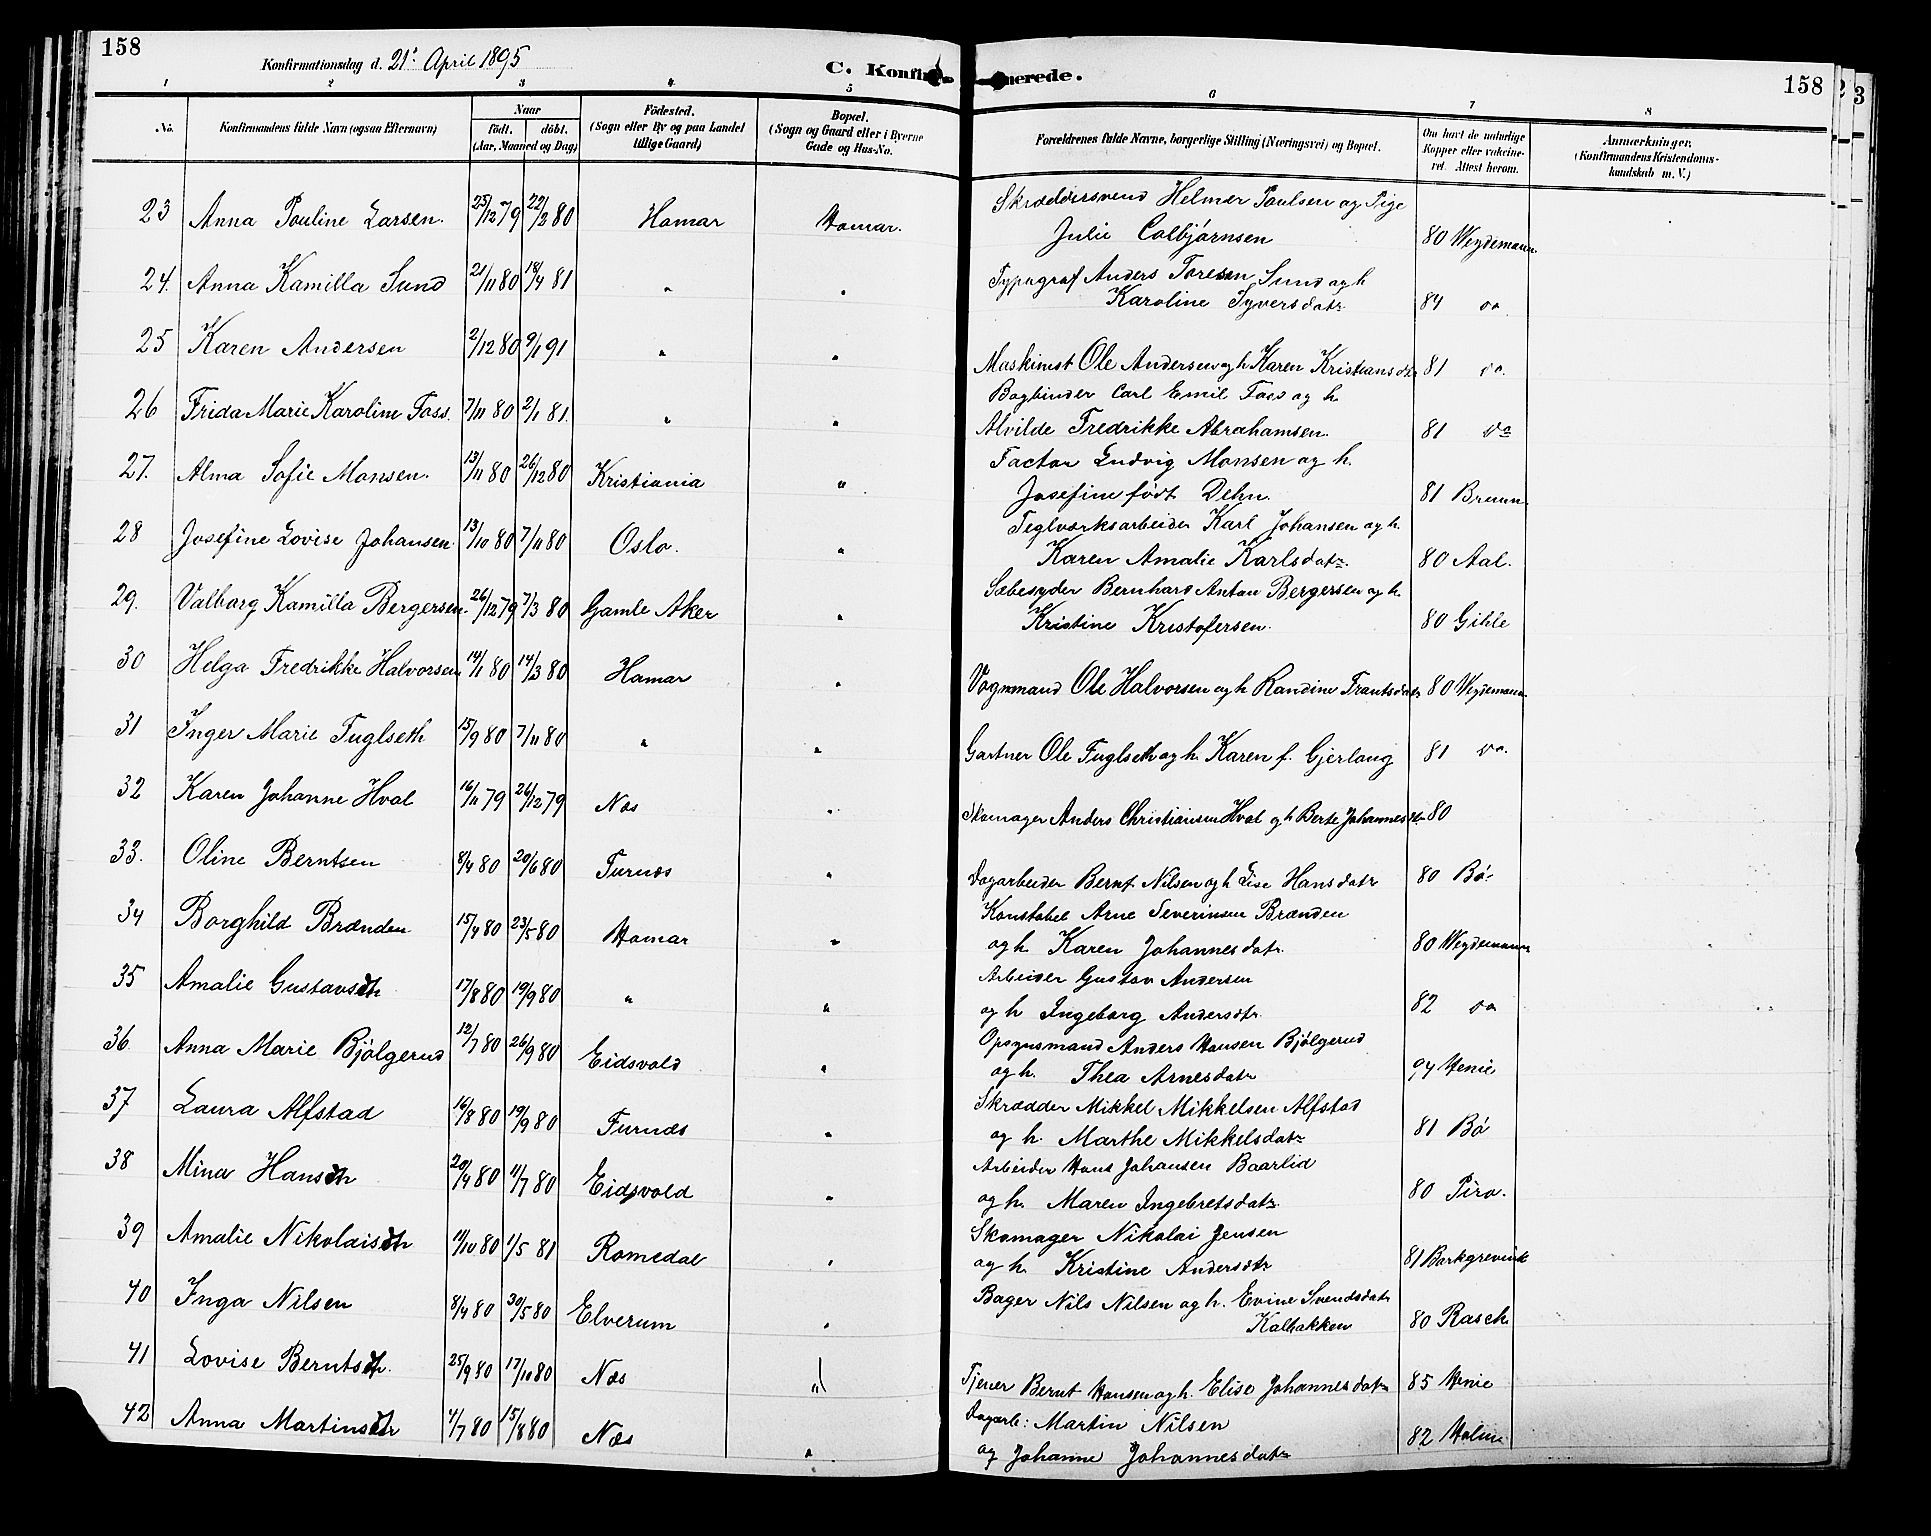 158
Konfirmationsdag d. 21' April 1895
C. Konfir
merede.
158
1 2 3 4 5 6 7 8
No.
Konfirmandens fulde Navn (ogsaa Efternavn)
Naar
født. døbt.
(Aar, Maaned og Dag)
Fødested.
(Sogn eller By og paa Landet
tillige Gaard)
Bopæl.
(Sogn og Gaard eller i Byerne
Gade og Hus-No.
Forældrenes fulde Navne, borgerlige Stilling (Næringsvei) og Bopæl.
Om havt de naturlige
Kopper eller vakcine-
ret. Attest herom.
Anmærkninger.
(Konfirmandens Kristendoms-
kundskab m. V.)
Skræddersvend Helmer Paulsen og Pige
23 Anna Pauline Larsen. 25/12 79 22/2 80 Hamar Hamar. Julie Colbjørnsen 80 Weydemann.
Typograf Anders Toresen Sund og h
24. Anna Kamilla Sund 21/11 80 18/4 81 " " Karoline Syversdatr 84 do
25 Karen Andersen 2/12 80 9/1 91 " " Maskinist Ole Andersen og h Karen Kristiansdtr 81 do.
Bogbinder Carl Emil Foss og h.
26 Frida Marie Karoline Foss. 7/11 80 2/1 81. " " Alvilde Fredrikke Abrahamsen. 81 do
Factor Ludvig Monsen og h.
27. Alma Sofie Monsen. 13/11 80 26/12 80 Kristiania " Josefine født Dehn. 81 Bruun
Teglværksarbeider Karl Johansen og h.
28 Josefine Lovise Johansen. 13/10 80 7/11 80 Oslo. " Karen Amalie Karlsdatr. 80 Aal.
Sæbesyder Bernhard Anton Bergersen og h.
29. Valborg Kamilla Bergersen. 26/12 79 7/3 80 Gamle Aker " Kristine Kristofersen. 80 Gihle
30 Helga Fredrikke Halvorsen 14/1 80 14/3 80 Hamar " Vognmand Ole Halvorsen og h Randine Frantsdatr 80 Weydemann.
31 Inger Marie Fuglseth 15/9 80 7/11 80 " " Gartner Ole Fuglseth og h. Karen f. Gjerlang 81 do.
32 Karen Johanne Hval 16/11 79 26/12 79 Næs " Skomager Anders Christiansen Hval og h Berte Johannesdtr 80
33. Oline Berntsen 8/4 80 20/6 80 Furnæs " Dagarbeider Bernt Nilsen og h Lise Hansdatr 80 Bø.
Konstabel Arne Severinsen Brænden
34 Borghild Brænden 15/4 80 23/5 80 Hamar " og h. Karen Johannesdatr. 80 Weydemann
Arbeider Gustav Andersen
35 Amalie Gustavsdtr 17/8 80 19/9 80 " " og h Ingeborg Andersdtr. 82 do
Opsynsmand Anders Hansen Bjølgerud
36. Anna Marie Bjølgerud 12/7 80 26/9 80 Eidsvold " og h. Thea Arnesdatr 94 Henie
Skrædder Mikkel Mikkelsen Alfstad
37 Laura Alfstad 16/8 80 19/9 80 Furnæs " og h. Marthe Mikkelsdatr 81 Bø
Arbeider Hans Johansen Baarlid
38 Mina Hansdtr 20/4 80 11/7 80 Eidsvold " og h. Maren Ingebretsdatr. 80 Piro.
Skomager Nikolai Jensen
39 Amalie Nikolaisdtr 11/10 80 1/5 81 Romedal " og h. Kristine Andersdtr 81 Borkgrevink
40 Inga Nilsen 8/4 80 30/5 80 Elverum " Bager Nils Nilsen og h. Evine Svendsdatr
Kalbakken 80 Rasch
41 Lovise Berntsdtr. 25/9 80 17/10 80 Næs " Tjener Bernt Hansen og h. Elise Johannesdatr 85 Henie
Dagarb: Martin Nilsen
42 Anna Martinsdtr 4/7 80 15/8 80 Næs " og Johanne Johannesdatr 82 Holm